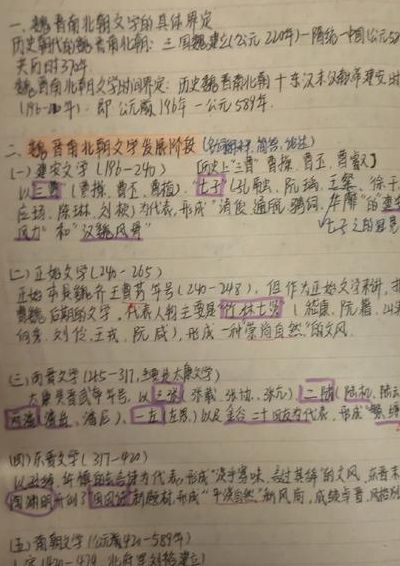 一.魏晋南北朝文学的具体界定
历史朝代的魏晋南北朝:三国魏建立(公元220年)—隋统一中国(公元58
共历时370年
魏晋南北朝文学时间界定:历史魏晋南北朝+东汉末汉献帝建安时
即公元196年—公元589年.
二.魏晋南北朝文学发展阶段
(一)建安文学(196-240) 【历史上"三曹"曹操、曹丕、曹叡】
以三曹(曹操、曹丕、曹植)."七子"(孔融、阮瑀、王粲、徐干
应玚、陈琳、刘桢)为代表,形成"清俊、通脱、骋词、华靡"的
风力"和"汉魏风骨" 七子之冠冕
(二)正始文学(240-265)
正始本是魏齐王曹芳年号(240-248),但作为正始文学来讲,
曹魏后期的文学,代表人物主要是"竹林七贤"(嵇康、阮籍、山
向秀、刘伶、王戎、阮咸),形成一种崇尚自然"的文风.
(三)西晋文学(265-317,主要是太康文学)
太康是晋武帝年号,以三张(张载、张协、张亢)、二陆(陆机、陆云
两潘(潘岳、潘尼)、一左(左思)以及金谷二十四友为代表,形成"
(四)东晋文学(317-420)
以为代表,形成"淡乎寡味"的文风,东晋末
陶渊明开创了田园诗新题材,形成"平淡自然"新风尚,成绩卓著,风格
(五)南朝文学(公元420-589年)